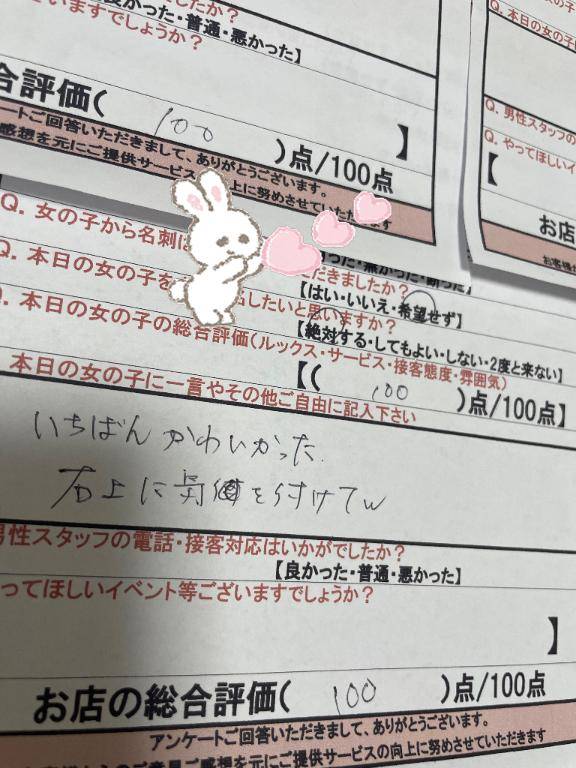 良かった・普通・悪かった】
いますでしょうか？
合評価( 100 )点/100点
】
ケートご回答いただきまして、ありがとうございます。
感想を元にご提供サービス 上に努めさせていただきます
Q. 本日の女の子
Q. 男性スタッフの
Q. やってほしいイ
【
お店
お客様
Q. 女の子から名刺は
ただきましたか？
【はい・いいえ・希望せず】
Q. 本日の女の子を
名したいと思いますか？
【絶対する・してもよい・しない・2度と来ない】
Q. 本日の女の子の総合評価(ルックス・サービス・接客態度・雰囲気)
【( 100 )点/100点】
本日の女の子に一言やその他ご自由に記入下さい
いちばんかわいかった
右上に
を付けてw
男性スタッフの電話・接客対応はいかがでしたか？
【良かった・普通・悪かった】
やってほしいイベント等ございますでしょうか？
】
お店の総合評価( 100 )点/100点
アンケートご回答いただきまして、ありがとうございます。
ご感想を元にご提供サービスの向上に努めさせていただきます